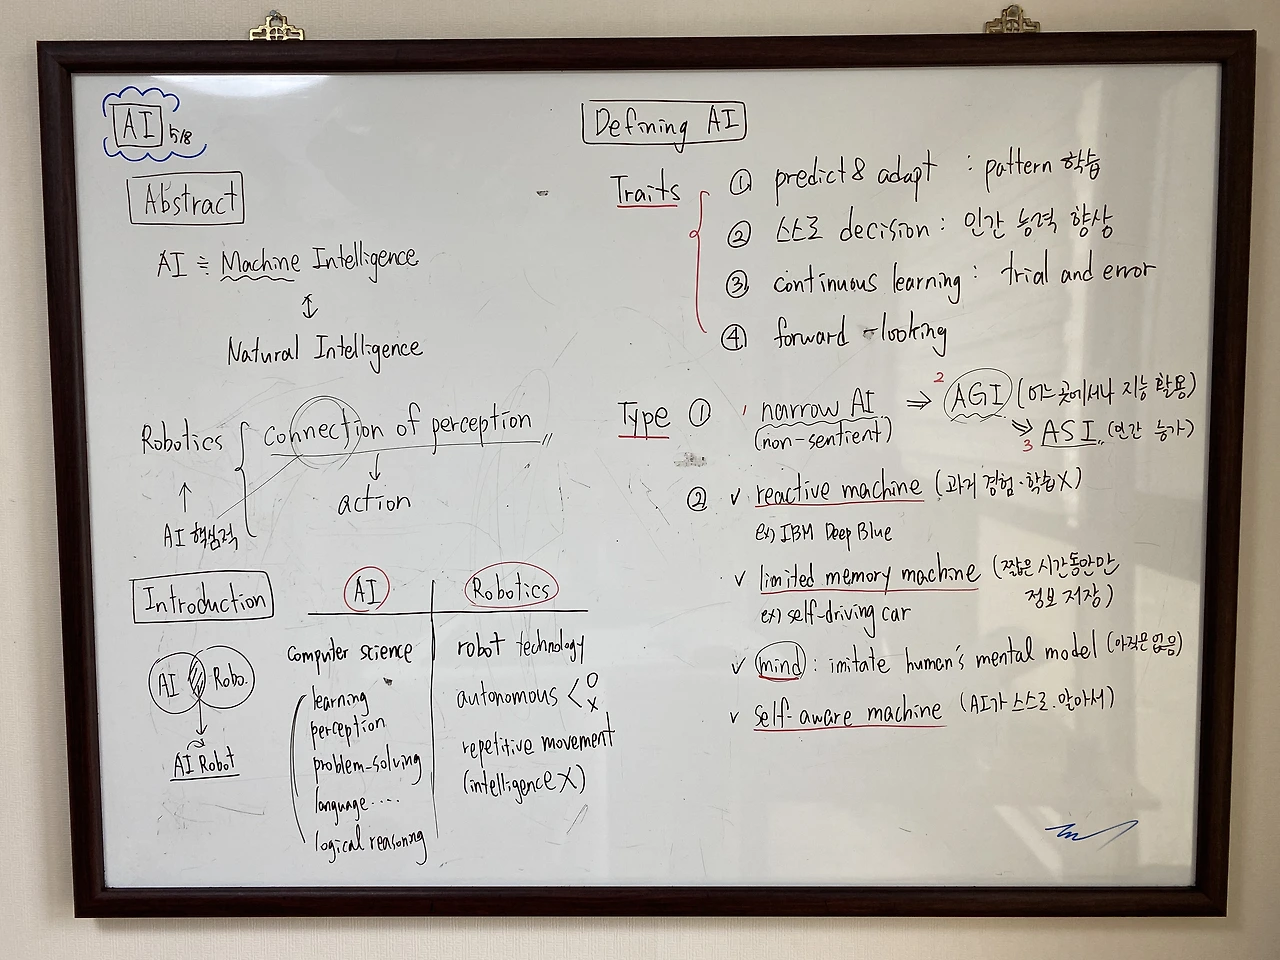 AI 5/8
Abstract
AI ≒ Machine Intelligence
↕
Natural Intelligence
Robotics { connection of perception
↓
action
↑
AI 핵심적
Introduction
AI Robo.
AI Robot
AI | Robotics
computer science
learning
perception
problem-solving
language....
logical reasoning
robot technology
autonomous < O X
repetitive movement
(intelligence X)
Defining AI
Traits
① predict & adapt : pattern 학습
② 스스로 decision : 인간 능력 향상
③ continuous learning : trial and error
④ forward-looking
Type ① 1 narrow AI ⇒ 2 AGI (어느 곳에서나 지능 활용)
(non-sentient) ⇒ 3 ASI.. (인간 능가)
② ✓ reactive machine (과거 경험·학습X)
ex) IBM Deep Blue
✓ limited memory machine (짧은 시간동안만
정보 저장)
ex) self-driving car
✓ mind : imitate human's mental model (아직은 없음)
✓ self-aware machine (AI가 스스로. 알아서)